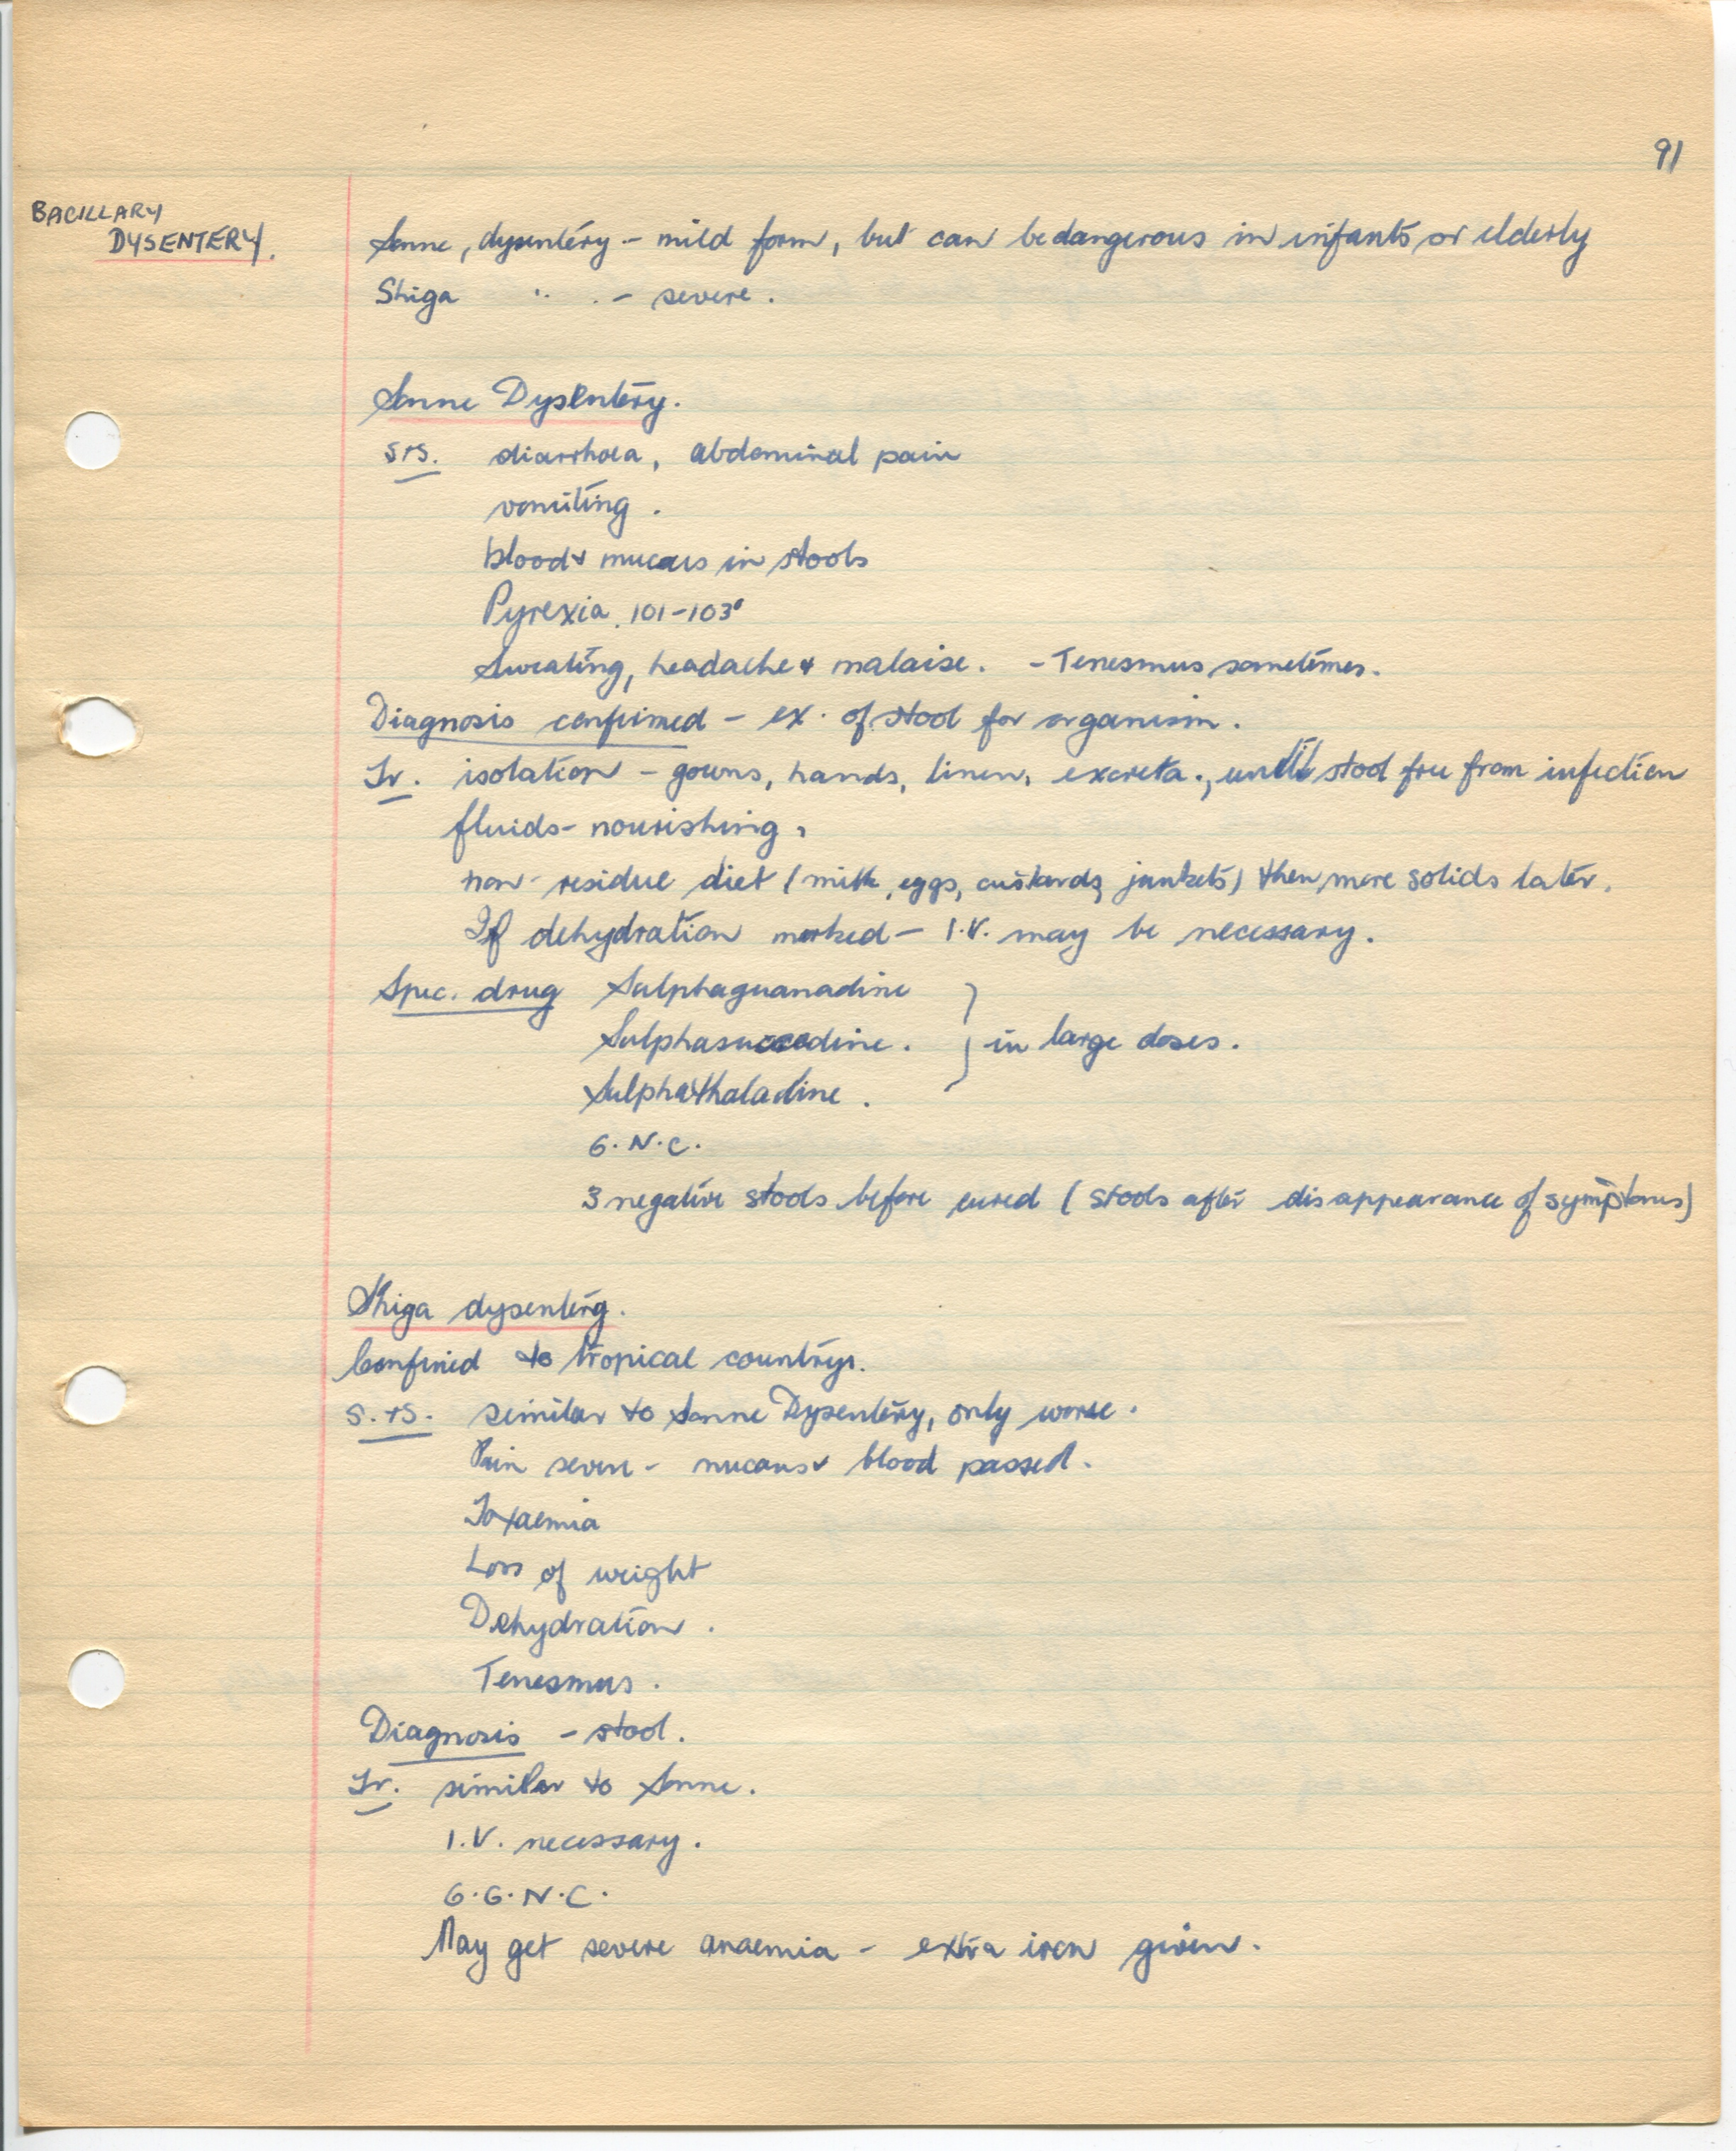 91
BACILLARY
DYSENTERY.
Sonne, dysentery - mild form, but can be dangerous in infants or elderly
Shiga " " - severe.
Sonne Dysentery.
S+S. diarrhoea, abdominal pain
vomiting.
blood + mucous in stools
Pyrexia. 101-103°
Sweating, headache + malaise. - Tenesmus sometimes.
Diagnosis confirmed - ex. of stool for organism.
Tr. isolation - gowns, hands, linen, excreta., until stool free from infection
fluids - nourishing,
non-residue diet (milk, eggs, custards, junkets) then more solids later.
If dehydration marked - I.V. may be necessary.
Spec. drug Sulphaguanadine
Sulphasuccadine. } in large doses.
Sulphathaladine.
G.N.C.
3 negative stools before cured (stools after disappearance of symptoms)
Shiga dysentery.
Confined to tropical countrys.
S.+S. similar to Sonne Dysentery, only worse.
Pain severe - mucous + blood passed.
Toxaemia
Loss of weight
Dehydration.
Tenesmus.
Diagnosis - stool.
Tr. similar to Sonne.
I.V. necessary.
G.G.N.C.
May get severe anaemia - extra iron given.